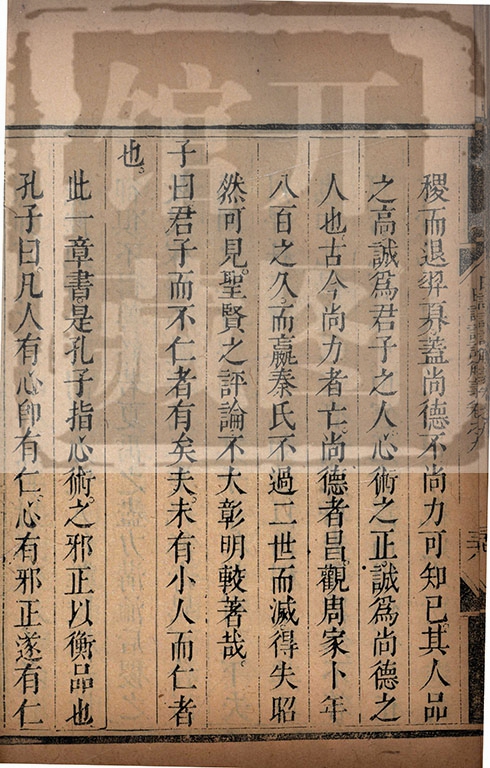 稷而退羿奡蓋尚德不尚力可知已其人品
之高誠爲君子之人心術之正誠爲尚德之
人也古今尚力者亡尚德者昌觀周家卜年
八百之久而嬴秦氏不過二世而滅得失昭
然可見聖賢之評論不大彰明較著哉
子曰君子而不仁者有矣夫未有小人而仁者
也
此一章書是孔子指心術之邪正以衡品也
孔子曰凡人有心卽有仁心有邪正遂有仁